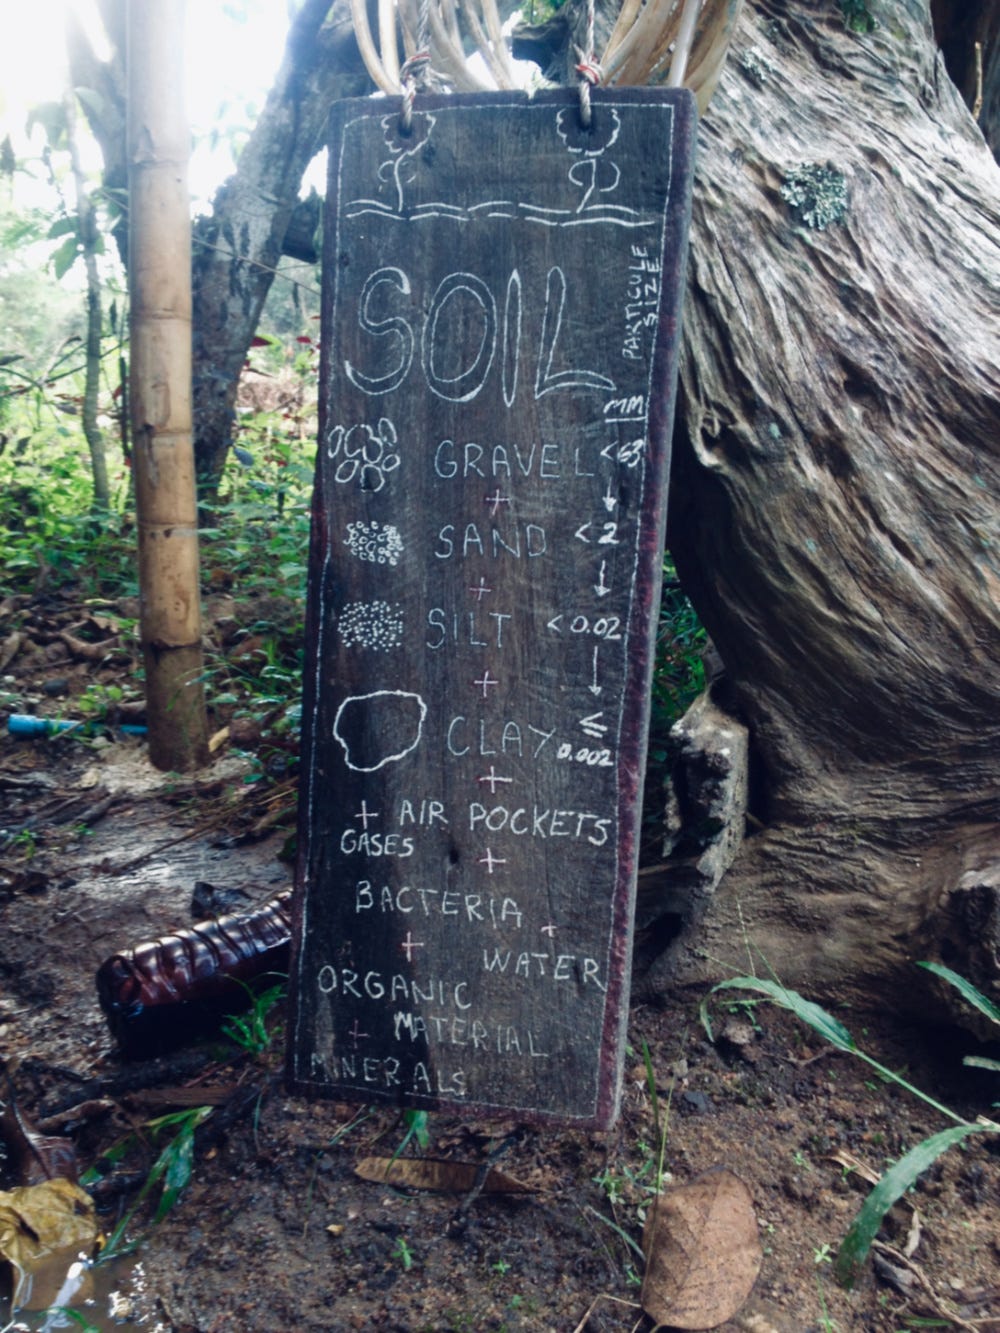 SOIL
PARTICULE
SIZE
MM
GRAVEL <63
+
SAND <2
+
SILT <0.02
+
CLAY ≤
0.002
+
+ AIR POCKETS
GASES +
BACTERIA +
+ WATER
ORGANIC
+ MATERIAL
MINERALS